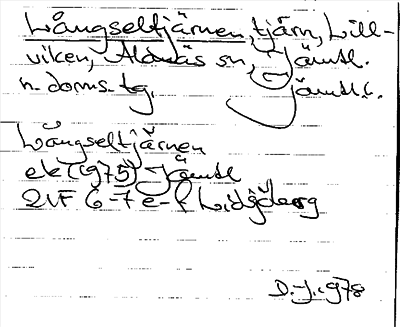 Långseltjärnen, tjärn, Lill-
viken, Alanäs sn, Jämtl.
n. doms. tg. Jämtl. l.
Långseltjärnen
ek (1975) Jämtl
21F 6-7 e-f Lidsjöberg
D.J. 1978